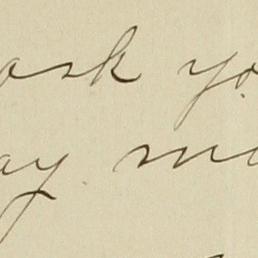 ask yo
ay mo